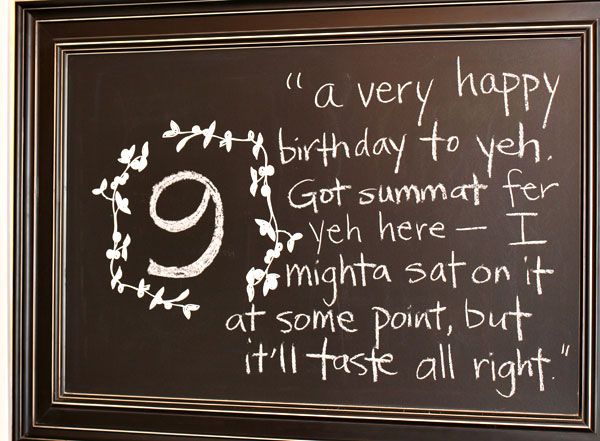 9
"a very happy
birthday to yeh.
Got summat fer
yeh here — I
mighta sat on it
at some point, but
it'll taste all right."